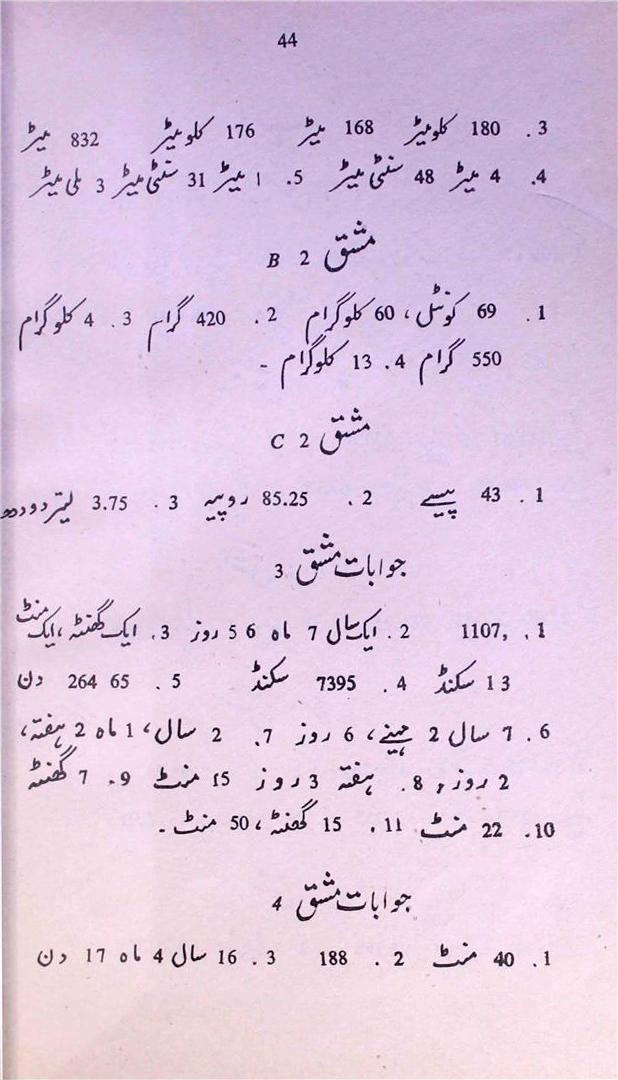 44
3. 180 کلومیٹر 168 میٹر 176 کلومیٹر 832 میٹر
4. 4 میٹر 48 سنٹی میٹر 5. 1 میٹر 31 سنٹی میٹر 3 ملی میٹر
مشق 2 B
1. 69 کونٹل، 60 کلوگرام 2. 420 گرام 3. 4 کلوگرام
550 گرام 4. 13 کلوگرام -
مشق 2 C
1. 43 پیسے 2. 85.25 روپیہ 3. 3.75 لیتر دودھ
جوابات مشق 3
1. 1107, 2. ایک سال 7 ماہ 6 5 روز 3. ایک گھنٹہ، ایک منٹ
13 سکنڈ 4. 7395 سکنڈ 5. 65 264 دن
6. 7 سال 2 مہینے، 6 روز 7. 2 سال، 1 ماہ 2 ہفتہ،
2 روز، 8. ہفتہ 3 روز 15 منٹ 9. 7 گھنٹہ
10. 22 منٹ 11. 15 گھنٹہ، 50 منٹ -
جوابات مشق 4
1. 40 منٹ 2. 188 3. 16 سال 4 ماہ 17 دن